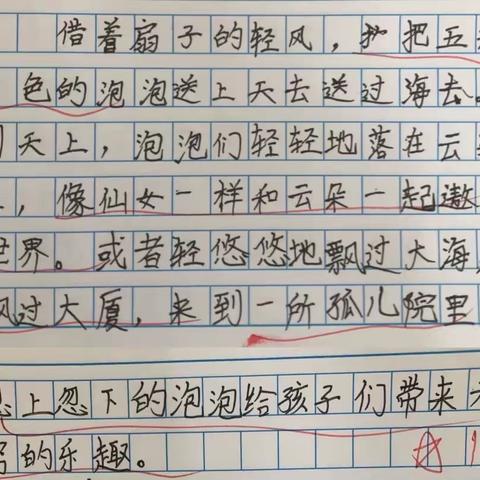 借着扇子的轻风，把五
色的泡泡送上天去送过海去。
天上，泡泡们轻轻地落在云
，像仙女一样和云朵一起遨
世界。或者轻悠悠地飘过大海，
飘过大厦，来到一所孤儿院里
忽上忽下的泡泡给孩子们带来
的乐趣。